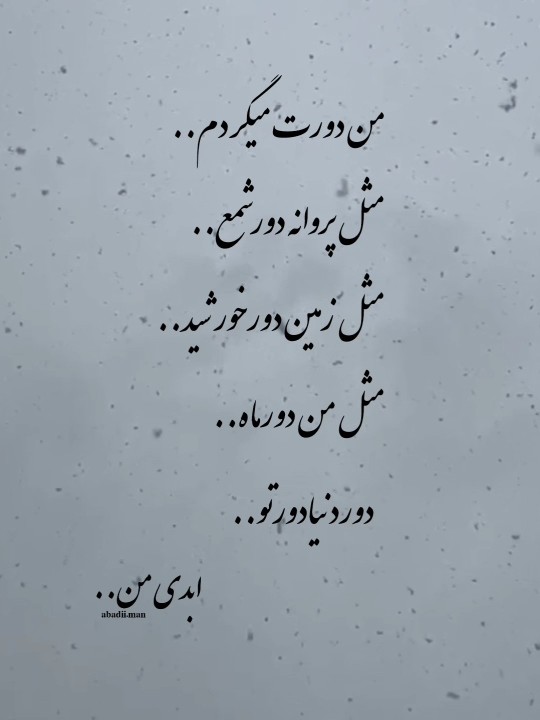 من دورت میگردم..
مثل پروانه دور شمع..
مثل زمین دور خورشید..
مثل من دور ماه..
دور دنیا دور تو..
ابدی من..
abadii.man